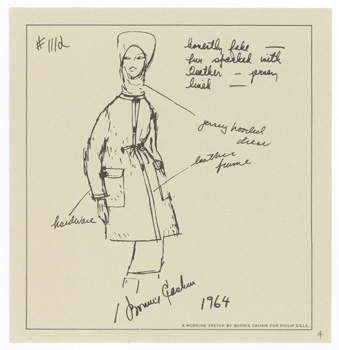 #1112
Honestly fake —
fur sparked with
leather — jersey
lined —
jersey hooded
dress
leather
frame
hardware
Bonnie Cashin
1964
A WORKING SKETCH BY BONNIE CASHIN FOR PHILIP SILLS.
4